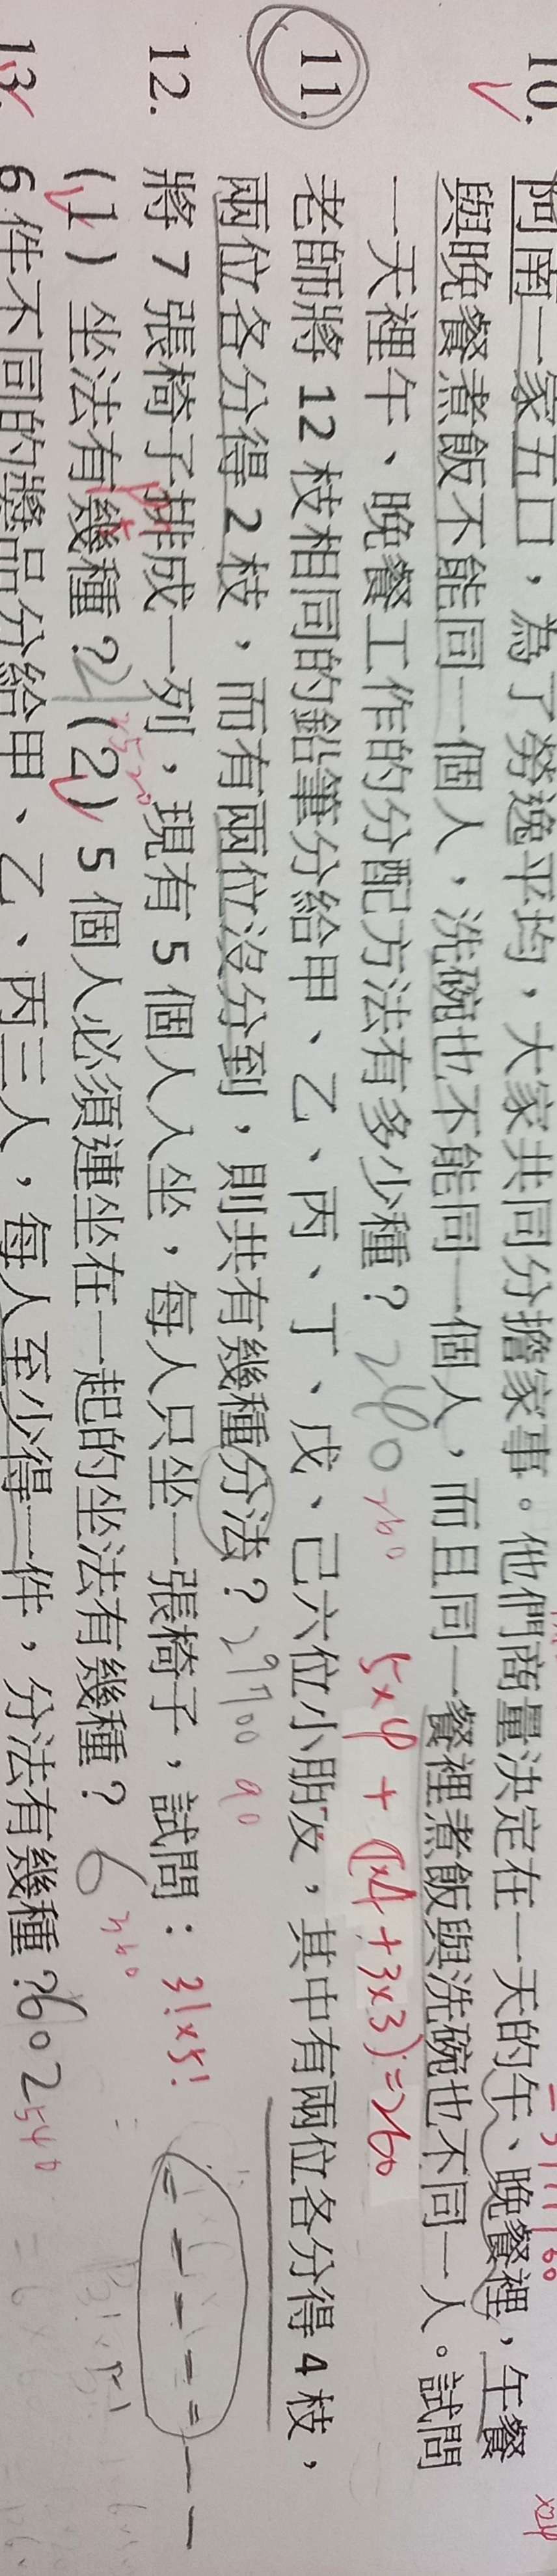 10. 阿南一家五口，為了勞逸平均，大家共同分擔家事。他們商量決定在一天的午、晚餐裡，午餐
與晚餐煮飯不能同一個人，洗碗也不能同一個人，而且同一餐裡煮飯與洗碗也不同一人。試問
一天裡午、晚餐工作的分配方法有多少種？240 260 5×4+(1×4+3×3)=260
11. 老師將 12 枝相同的鉛筆分給甲、乙、丙、丁、戊、己六位小朋友，其中有兩位各分得 4 枝，
兩位各分得 2 枝，而有兩位沒分到，則共有幾種分法？ 90
12. 將 7 張椅子排成一列，現有 5 個人入坐，每人只坐一張椅子，試問：3!×5!
(1) 坐法有幾種？21 2520 (2) 5 個人必須連坐在一起的坐法有幾種？6 360
13. 6 件不同的獎品分給甲、乙、丙三人，每人至少得一件，分法有幾種？602 540